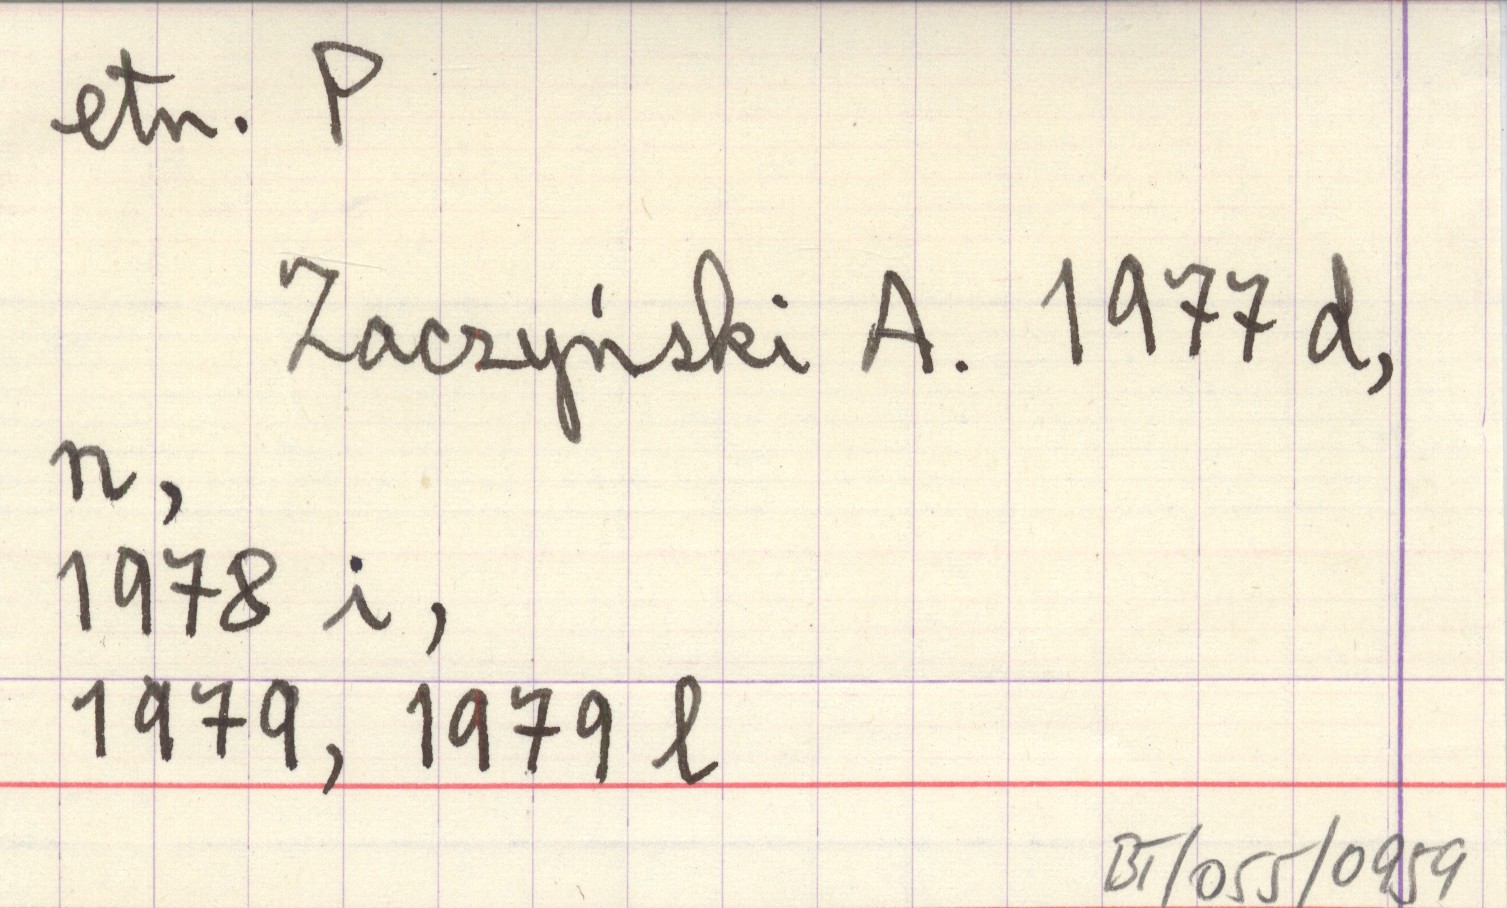 etn. P
Zaczyński A. 1977 d,
n,
1978 i,
1979, 1979 l
BT/055/0959